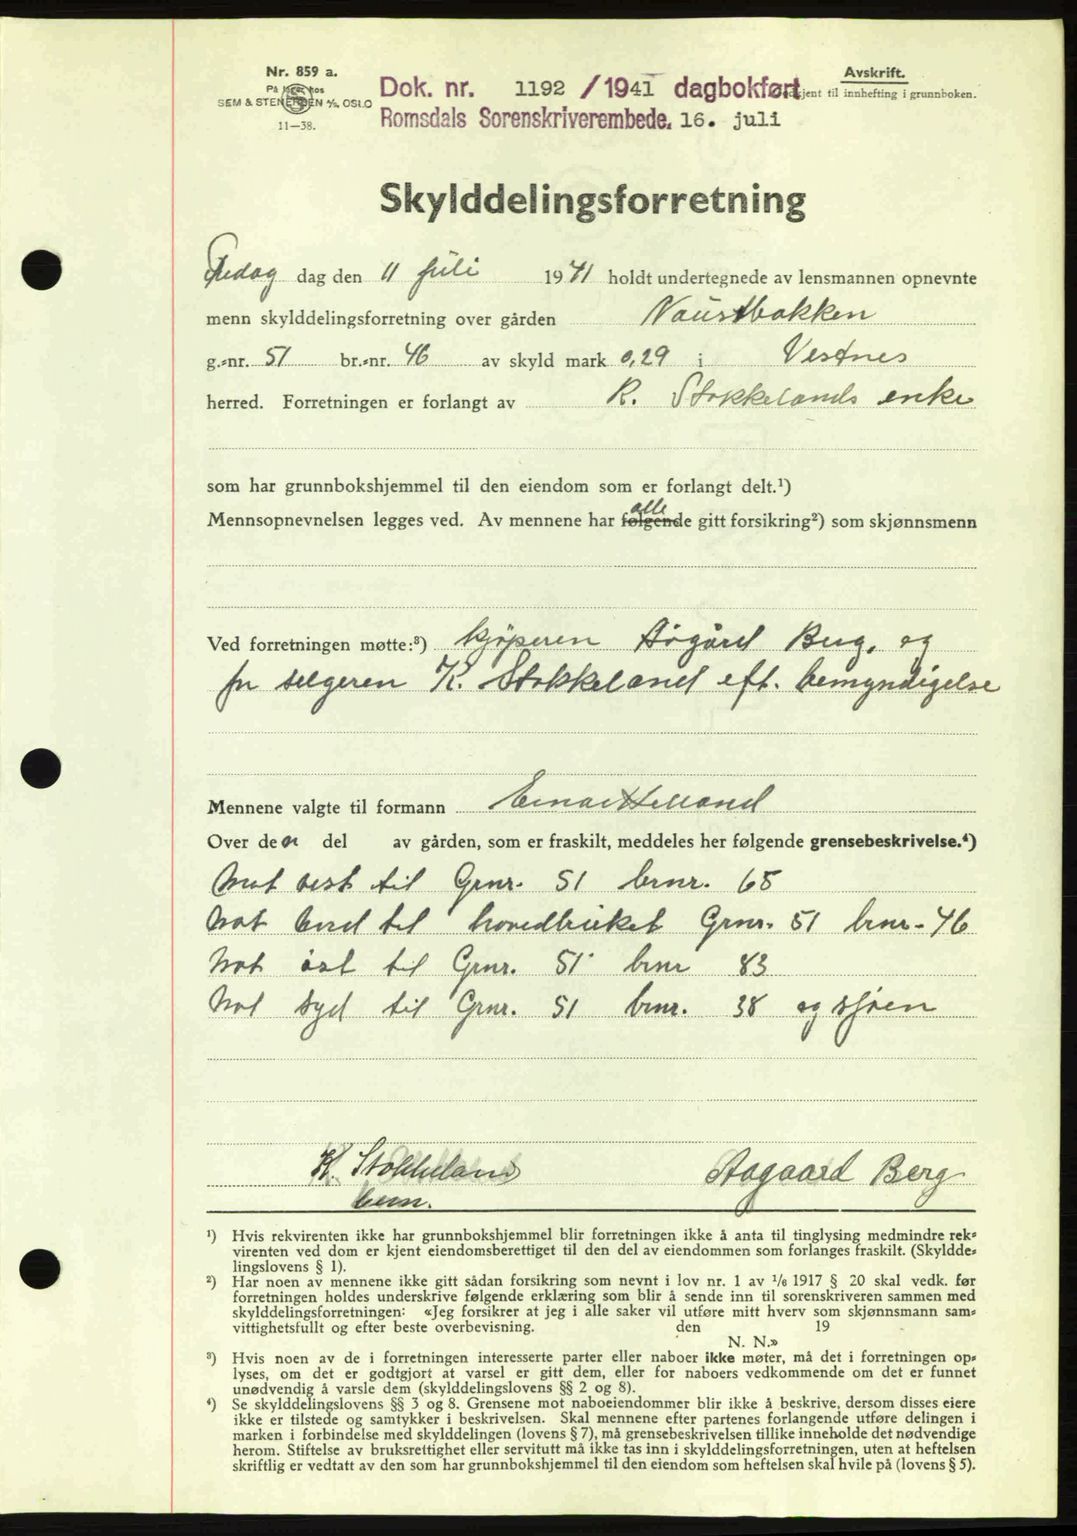 Nr. 859 a.
På lager hos
SEM & STENERSEN A/S, OSLO
11—38.
Dok. nr. 1192 /1941 dagbokført
Romsdals Sorenskriverembede. 16. juli
Avskrift.
kjent til innhefting i grunnboken.
Skylddelingsforretning
Fredag dag den 11 juli 1941 holdt undertegnede av lensmannen opnevnte
menn skylddelingsforretning over gården Naustbakken
g.-nr. 51 br.-nr. 46 av skyld mark 0,29 i Vestnes
herred. Forretningen er forlangt av K. Stokkelands enke
som har grunnbokshjemmel til den eiendom som er forlangt delt.¹)
alle
Mennsopnevnelsen legges ved. Av mennene har følgende gitt forsikring²) som skjønnsmenn
Ved forretningen møtte:³) kjøperen Aogård Berg, og
for selgeren K. Stokkeland eft. bemyndigelse
Mennene valgte til formann Einar Helland
Over den del av gården, som er fraskilt, meddeles her følgende grensebeskrivelse.⁴)
Mot vest til Grnr. 51 brnr. 65
Mot nord til hovedbruket Grnr. 51 brnr. 46
Mot øst til Grnr. 51 brnr 83
Mot syd til Grnr. 51 brnr. 38 og sjøen
K. Stokkeland Aagaard Berg
bem.
¹) Hvis rekvirenten ikke har grunnbokshjemmel blir forretningen ikke å anta til tinglysing medmindre rek-
virenten ved dom er kjent eiendomsberettiget til den del av eiendommen som forlanges fraskilt. (Skyldde-
lingslovens § 1).
²) Har noen av mennene ikke gitt sådan forsikring som nevnt i lov nr. 1 av 1/6 1917 § 20 skal vedk. før
forretningen holdes underskrive følgende erklæring som blir å sende inn til sorenskriveren sammen med
skylddelingsforretningen: «Jeg forsikrer at jeg i alle saker vil utføre mitt hverv som skjønnsmann sam-
vittighetsfullt og efter beste overbevisning. den 19
N. N.»
³) Hvis noen av de i forretningen interesserte parter eller naboer ikke møter, må det i forretningen op-
lyses, om det er godtgjort at varsel er gitt dem, eller for naboers vedkommende om det er funnet
unødvendig å varsle dem (skylddelingslovens §§ 2 og 8).
⁴) Se skylddelingslovens §§ 3 og 8. Grensene mot naboeiendommer blir ikke å beskrive, dersom disses eiere
ikke er tilstede og samtykker i beskrivelsen. Skal mennene efter partenes forlangende utføre delingen i
marken i forbindelse med skylddelingen (lovens § 7), må grensebeskrivelsen tillike inneholde det nødvendige
herom. Stiftelse av bruksrettighet eller servitutt må ikke tas inn i skylddelingsforretningen, uten at heftelsen
skriftlig er vedtatt av den som har grunnbokshjemmel til den eiendom som heftelsen skal hvile på (lovens § 5).